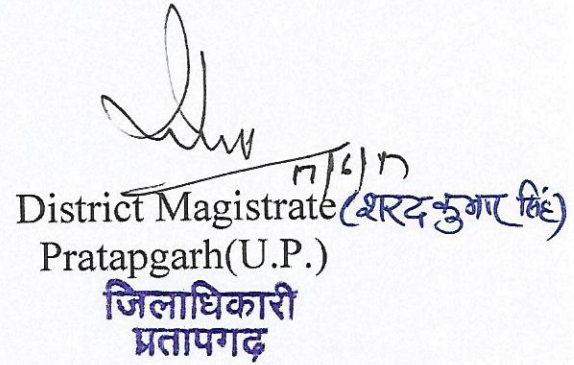 17/6/17
District Magistrate (शरद कुमार सिंह)
Pratapgarh(U.P.)
जिलाधिकारी
प्रतापगढ़